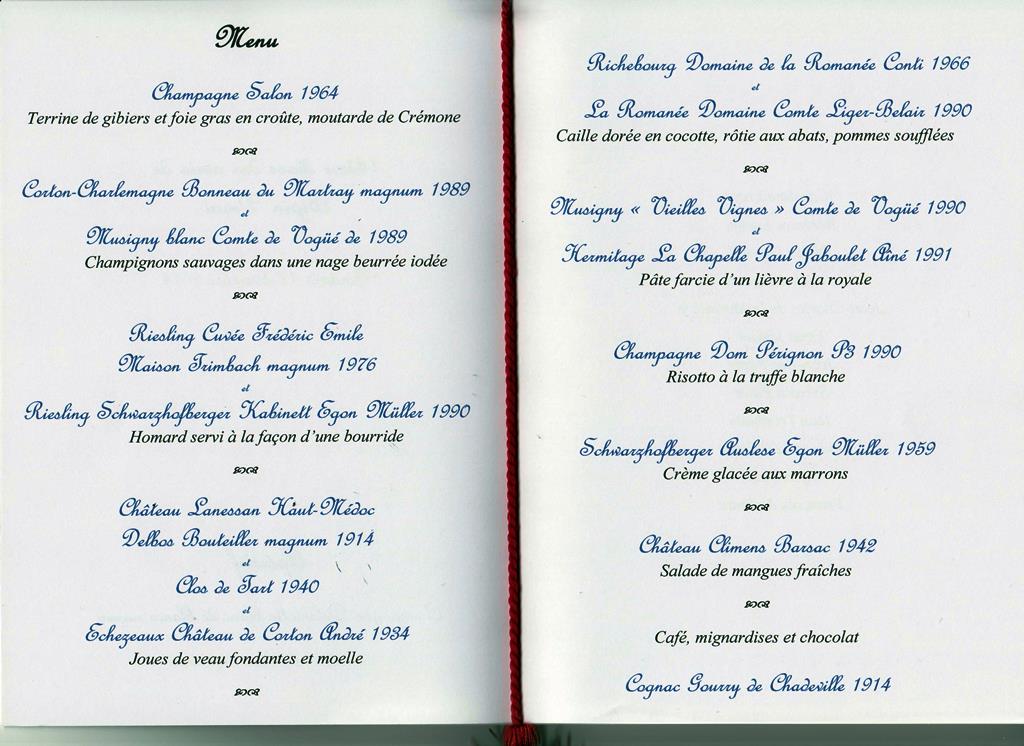 Menu
Champagne Salon 1964
Terrine de gibiers et foie gras en croûte, moutarde de Crémone
Corton-Charlemagne Bonneau du Martray magnum 1989
et
Musigny blanc Comte de Vogüé de 1989
Champignons sauvages dans une nage beurrée iodée
Riesling Cuvée Frédéric Emile
Maison Trimbach magnum 1976
et
Riesling Schwarzhofberger Kabinett Egon Müller 1990
Homard servi à la façon d'une bourride
Château Lanessan Haut-Médoc
Delbos Bouteiller magnum 1914
et
Clos de Tart 1940
et
Echezeaux Château de Corton André 1934
Joues de veau fondantes et moelle
Richebourg Domaine de la Romanée Conti 1966
et
La Romanée Domaine Comte Liger-Belair 1990
Caille dorée en cocotte, rôtie aux abats, pommes soufflées
Musigny « Vieilles Vignes » Comte de Vogüé 1990
et
Hermitage La Chapelle Paul Jaboulet Aîné 1991
Pâte farcie d'un lièvre à la royale
Champagne Dom Pérignon P3 1990
Risotto à la truffe blanche
Schwarzhofberger Auslese Egon Müller 1959
Crème glacée aux marrons
Château Climens Barsac 1942
Salade de mangues fraîches
Café, mignardises et chocolat
Cognac Gourry de Chadeville 1914